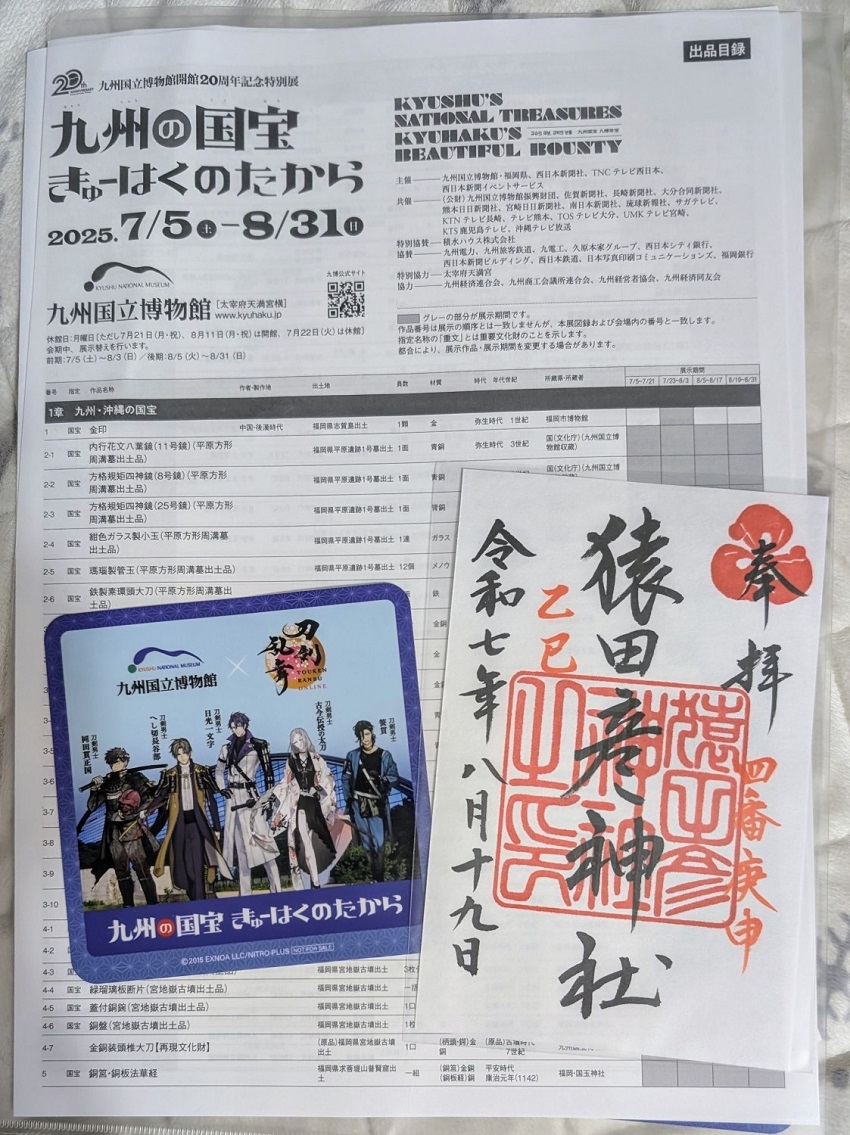 出品目録
20th
ANNIVERSARY
九州国立博物館開館20周年記念特別展
九州の国宝
きゅーはくのたから
2025.7/5土–8/31日
KYUSHU NATIONAL MUSEUM
九州国立博物館 [太宰府天満宮横]
www.kyuhaku.jp
九博公式サイト
休館日:月曜日[ただし7月21日(月・祝)、8月11日(月・祝)は開館、7月22日(火)は休館]
会期中、展示替えを行います。
前期:7/5(土)〜8/3(日)/後期:8/5(火)〜8/31(日)
KYUSHU'S
NATIONAL TREASURES
KYUHAKU'S
BEAUTIFUL BOUNTY
主催――九州国立博物館・福岡県、西日本新聞社、TNCテレビ西日本、
西日本新聞イベントサービス
共催――(公財)九州国立博物館振興財団、佐賀新聞社、長崎新聞社、大分合同新聞社、
熊本日日新聞社、宮崎日日新聞社、南日本新聞社、琉球新報社、サガテレビ、
KTNテレビ長崎、テレビ熊本、TOSテレビ大分、UMKテレビ宮崎、
KTS鹿児島テレビ、沖縄テレビ放送
特別協賛――積水ハウス株式会社
協賛――九州電力、九州旅客鉄道、九電工、久原本家グループ、西日本シティ銀行、
西日本新聞ビルディング、西日本鉄道、日本写真印刷コミュニケーションズ、福岡銀行
特別協力――太宰府天満宮
協力――九州経済連合会、九州商工会議所連合会、九州経営者協会、九州経済同友会
グレーの部分が展示期間です。
作品番号は展示の順序とは一致しませんが、本展図録および会場内の番号と一致します。
指定名称の「重文」とは重要文化財のことを示します。
都合により、展示作品・展示期間を変更する場合があります。
番号 指定 作品名称 作者・製作地 出土地 員数 材質 時代 年代世紀 所蔵県・所蔵者 展示期間
7/5–7/21 7/23–8/3 8/5–8/17 8/19–8/31
1章 九州・沖縄の国宝
1 国宝 金印 中国・後漢時代 福岡県志賀島出土 1顆 金 弥生時代 1世紀 福岡市博物館
2-1 国宝 内行花文八葉鏡(11号鏡)(平原方形周溝墓出土品) 福岡県平原遺跡1号墓出土 1面 青銅 弥生時代 3世紀 国(文化庁)(九州国立博物館収蔵)
2-2 国宝 方格規矩四神鏡(8号鏡)(平原方形周溝墓出土品) 福岡県平原遺跡1号墓出土 1面 青銅 国(文化庁)(九州国立博
2-3 国宝 方格規矩四神鏡(25号鏡)(平原方形周溝墓出土品) 福岡県平原遺跡1号墓出土 1面 青銅
2-4 国宝 紺色ガラス製小玉(平原方形周溝墓出土品) 福岡県平原遺跡1号墓出土 1連 ガラス
2-5 国宝 瑪瑙製管玉(平原方形周溝墓出土品) 福岡県平原遺跡1号墓出土 12個 メノウ
2-6 国宝 鉄製素環頭大刀(平原方形周溝墓出土品) 鉄
金銅
金
3-6
3-7
3-8
3-9
3-10
4-1
4-2
4-3 国宝 福岡県宮地嶽古墳出土 3枚
4-4 国宝 緑瑠璃板断片(宮地嶽古墳出土品) 福岡県宮地嶽古墳出土 一括
4-5 国宝 蓋付銅鋺(宮地嶽古墳出土品) 福岡県宮地嶽古墳出土 1口
4-6 国宝 銅盤(宮地嶽古墳出土品) 福岡県宮地嶽古墳出土 1枚
4-7 金銅装頭椎大刀【再現文化財】 (原品)福岡県宮地嶽古墳出土 1口 (柄頭・鍔)金銅 (原品)古墳時代 7世紀
5 国宝 銅筥・銅板法華経 福岡県求菩提山普賢窟出土 一組 (銅筥)金銅 (銅板経)銅 平安時代 康治元年(1142) 福岡・国玉神社
KYUSHU NATIONAL MUSEUM
九州国立博物館
×
刀剣乱舞
TOUKEN
RANBU
ONLINE
刀剣男士
同田貫正国
刀剣男士
へし切長谷部
刀剣男士
日光一文字
刀剣男士
古今伝授の太刀
刀剣男士
笹貫
九州の国宝 きゅーはくのたから
©2015 EXNOA LLC/NITRO PLUS NOT FOR SALE
奉拝
四番庚申
猿田彦神社
猿田彦
神社
之印
乙巳
令和七年八月十九日